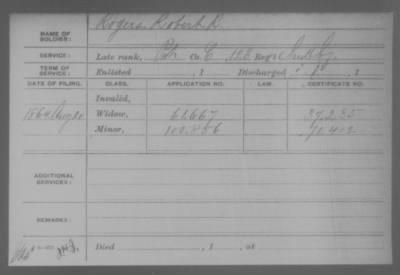 NAME OF SOLDIER: Rogers, Robert R.
SERVICE: Late rank, Co. E, 123 Reg't Ind. Inf.
TERM OF SERVICE: Enlisted , 1 Discharged , 1
DATE OF FILING. CLASS. APPLICATION NO. LAW. CERTIFICATE NO.
Invalid,
1864 Aug 20 Widow, 61.667 37.235
Minor, 100.856 71.402
ADDITIONAL SERVICES:
REMARKS:
Died , 1 , at